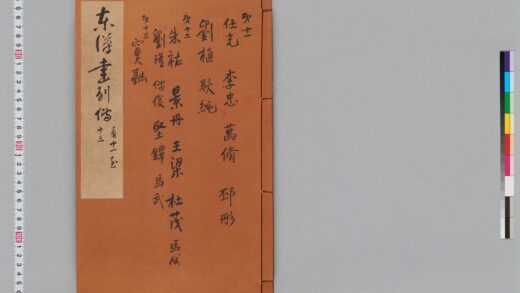 第十一
任光 李忠 萬脩 邳彤
劉植 耿純
第十二
朱祐 景丹 王梁 杜茂 馬成
劉隆 傅俊 堅鐔 馬武
第十三
竇融
東漢書列傳 自十一至
十三